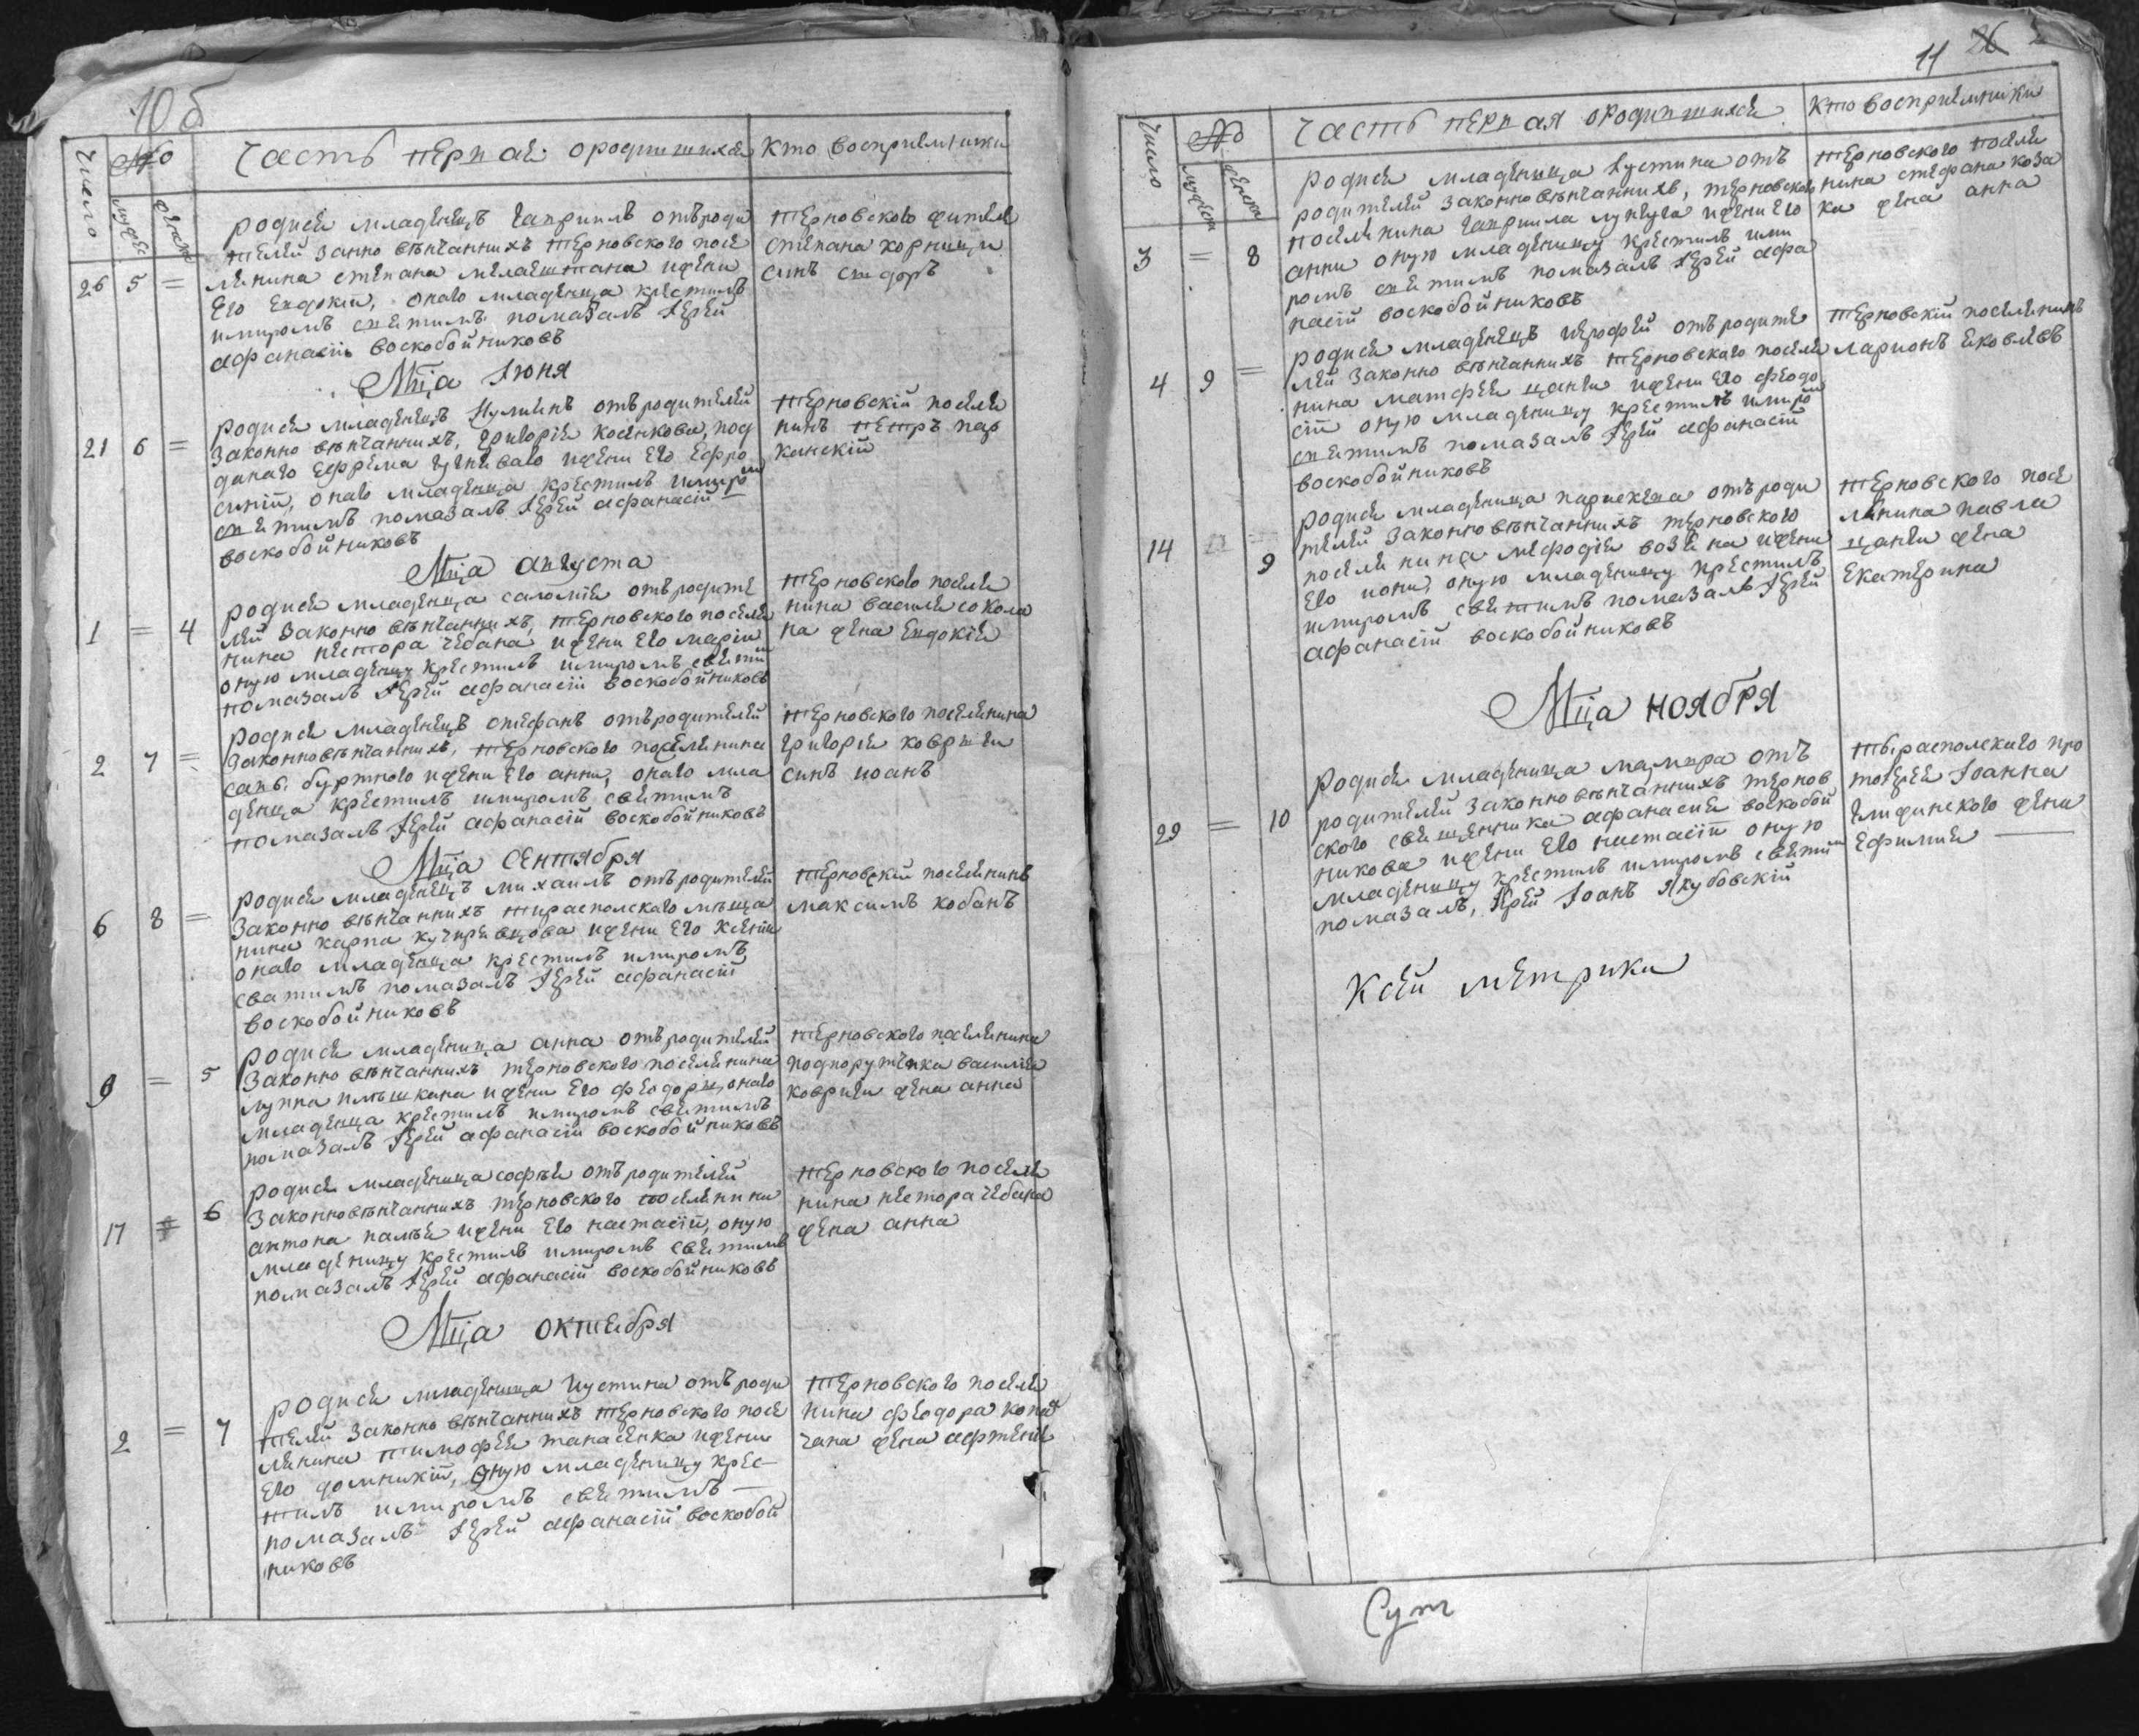 10 б
Число
№
мужес
женск
Часть первая ородившихся
Кто восприемники
26 5 =
родися младенецъ Гавриилъ отъ роди
телей занно вѣнчаннихъ терновского посе
ленина стефана мелаештана ижени
его евдокіи, онаго младенца крестилъ
имиромъ святимъ помазалъ Іерей
афанасіи воскобойниковъ
терновского жителя
степана корници
синъ сидоръ
Мца Іюня
21 6 =
родися младенецъ отъ родителей
законно вѣнчаннихъ, григорія косенкова, под
данаго ефрема ижени его ефро
синіи, онаго младенца крестилъ имиром
святимъ помазалъ Іерей афанасіи
воскобойниковъ
терновскій поселе
нинъ петръ пар
канскій
Мца августа
1 = 4
родися младеница саломія отъ родите
лей законно вѣнчаннихъ, терновского поселе
нина нестора чебана ижени его маріи
оную младеницу крестилъ имиромъ святим
помазалъ Іерей афанасіи воскобойниковъ
терновского поселе
нина василя сокола
на жена евдокія
2 7 =
родися младенецъ стефанъ отъ родителей
законновѣнчаннихъ, терновского поселенина
савв. буртного ижени его анни, онаго мла
денца крестилъ имиромъ святимъ
помазалъ Іерей афанасій воскобойниковъ
терновского поселенина
григорія ковриги
синъ иоанъ
Мца Сентября
6 8 =
родися младенецъ михаилъ отъ родителей
законно вѣнчаннихъ тираспольского мѣща
нина карпа ижени его ксеніи
онаго младенца крестилъ имиромъ
сватимъ помазалъ Іерей афанасій
воскобойниковъ
терновскій поселенинъ
максимъ кобанъ
9 = 5
родися младеница анна отъ родителей
законно вѣнчаннихъ терновского поселенина
лупна ижени его феодори, онаго
младенца крестилъ имиромъ святимъ
помазалъ Іерей афанасіи воскобойниковъ
терновского поселенина
подпоручика василія
ковриги жена анна
17 = 6
родися младеница софья отъ родителей
законновѣнчаннихъ терновского поселенина
антона ижени его настасіи, оную
младеницу крестилъ имиромъ святимъ
помазалъ Іерей афанасій воскобойниковъ
терновского поселе
нина нестора чебана
жена анна
Мца октября
2 = 7
родися младеница иустина отъ роди
телей законно вѣнчаннихъ терновского посе
ленина тимофея танасенка ижени
его домникіи, оную младеницу крес
тилъ имиромъ святимъ
помазалъ Іерей афанасій воскобой
никовъ
терновского поселе
нина феодора копа
чана жена
11 26
Число
№
мужеск
женска
Часть первая ородившихся
Кто восприемники
3 = 8
родися младеница Іустина отъ
родителей законновѣнчаннихъ, терновского
поселенина гавриила ижени его
анни оную младеницу крестилъ ими
ромъ святимъ помазалъ Іерей афа
насій воскобойниковъ
терновского поселе
нина стефана коза
ка жена анна
4 9 =
родися младенецъ иерофей отъ родите
лей законно вѣнчаннихъ терновского поселе
нина матфея цанги ижени его феодо
сіи оную младеницу крестилъ имиро
святимъ помазалъ Іерей афанасій
воскобойниковъ
терновскій поселенинъ
ларионъ яковлевъ
14 = 9
родися младеница параскева отъ роди
телей законновѣнчаннихъ терновского
поселенина мефодія ижени
его иони, оную младеницу крестилъ
имиромъ святимъ помазалъ Іерей
афанасій воскобойниковъ
терновского посе
ленина павла
цанги жена
екатерина
Мца ноября
29 = 10
родися младеница мамыра отъ
родителей законновѣнчаннихъ тернов
ского священника афанасия воскобой
никова ижени его настасіи оную
младеницу крестилъ имиромъ святим
помазалъ, Ірей Іоанъ Якубовскій
тираспольскаго про
тоерея Іоанна
жени
ефимия
Ксей метрики
Сут